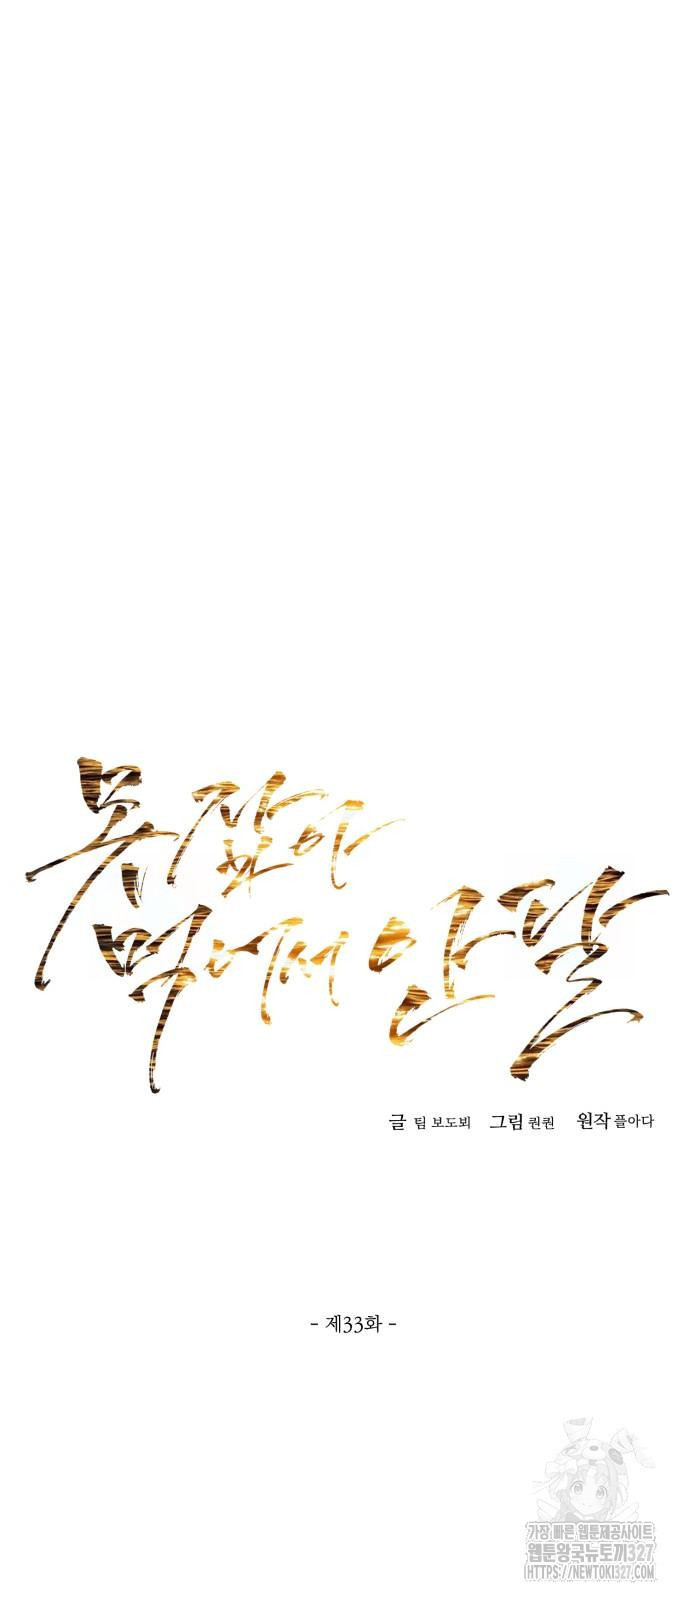 못 잡아
먹어서 안달
글 팀 보도뵈 그림 퀀퀀 원작 플아다
- 제33화 -
가장 빠른 웹툰제공사이트
웹툰왕국뉴토끼327
HTTPS://NEWTOKI327.COM